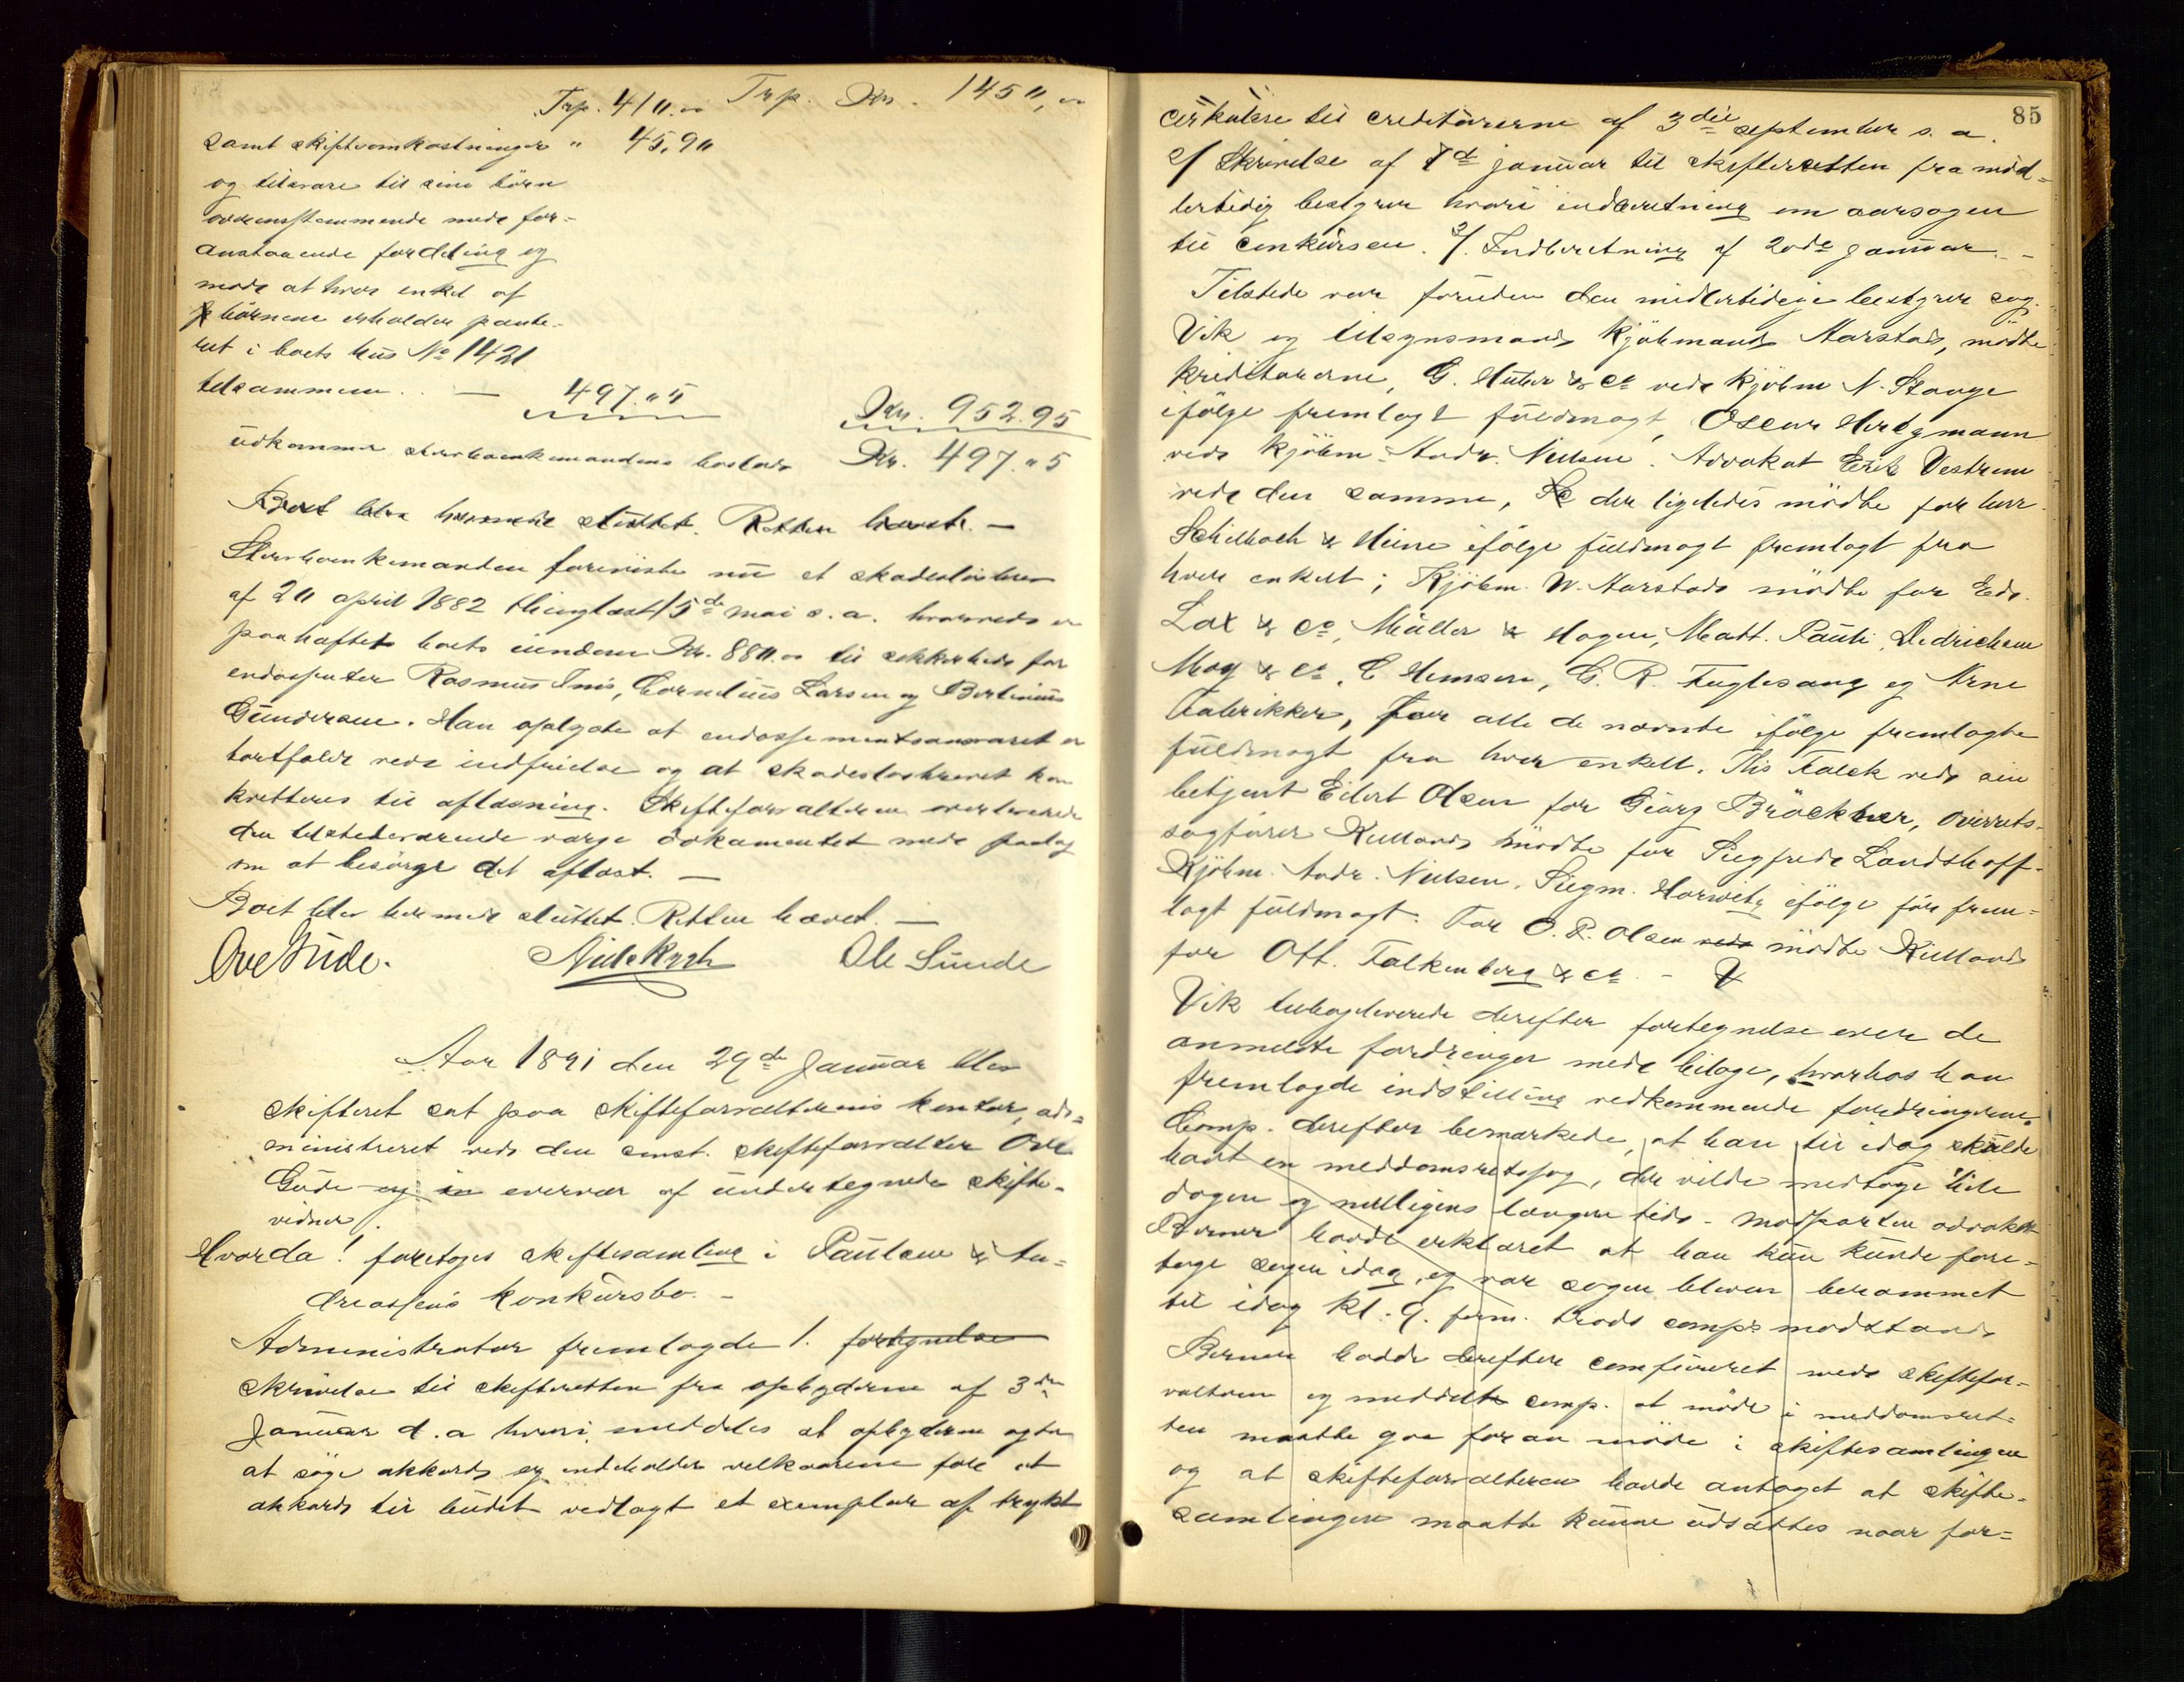 Trp. 410.00 Trp. Kr. 1450,00
samt skifteomkostninger " 45,90
og tilsvare til sine börn
overensstemmende med for-
anstaaende fordeling og
mod at hver enkel af
börnene erholder pante-
ret i boets hus No 1421
tilsammen . . — 497.05 Kr. 952.95
udkommer Kr. 497.05
Boet blev hermed sluttet. Retten hævet. —
foreviste nu et skadeslösbrev
af 20 april 1882 thinglæst 15de mai s. a. hvorved er
paaheftet boets eiendom Kr. 880.00 til sikkerhed for
endossenter Rasmus Inis, Cornelius Larsen og Bertinius
Gundersen. Han oplyste at endossementsansvaret er
bortfaldt ved indfrielse og at skadeslösbrevet kan
kvitteres til aflæsning. Skifteforvalteren overleverede
den tilstedeværende værge dokumentet med paalæg
om at besörge det aflæst. —
Boet blev hermed sluttet. Retten hævet. —
Ove Gude. Niels Rygh Ole Sunde
Aar 1891 den 29de Januar blev
skifteret sat paa skifteforvalterens kontor, ad-
ministreret ved den const. skifteforvalter Ove
Gude og in overvær af undertegnede skifte-
vidner.
Hvorda! foretoges skiftesamling i Paulsen & An-
dreassens konkursbo. —
Administrator fremlagde 1. fortegnelse
skrivelse til skifteretten fra opbyderne af 3die
Januar d. a. hvori meddeles at opbyderne agter
at söge akkord og indeholder vilkaarene for et
akkords tilbudet vedlagt et exemplar af trykt
85
cirkulære til creditorerne af 3die september s. a.
2/ Skrivelse af 7de januar til skifteretten fra mid-
lertidig bestyrer hvori indberetning om aarsagen
til conkursen. 3/. Indberetning af 20de januar. -
Tilstede var foruden den midlertidige bestyrer sag.
Vik og tilsynsmand kjöbmand Aarstad, mödte
kreditorerne, G. Huber & Co ved kjöbm N. Stange
ifölge fremlagt fuldmagt, Oscar Hertzmann
ved kjöbm. Andr. Nielsen. Advokat Erik Vestrem
ved den samme, der ligeledes mödte for herr
Schilbach & Heine ifölge fuldmagt fremlagt fra
hver enkelt; Kjöbm. W. Aarstad mödte for Edv.
Lax & Co, Müller & Hagen, Matt. Pauli, Didrichsen
May & Co, C Hemsen, G. R. Fuglesang og Arne
Fabrikker, for alle de nævnte ifölge fremlagte
fuldmagt fra hver enkelt. Ths Falck ved sin
betjent Eilert Olsen for Georg Bröckner, overrets-
sagförer Kielland mödte for Siegfried Landshoff.
Kjöbm. Andr. Nielsen. Siegm. Horwitz ifölge för frem-
lagt fuldmagt. For O. P. Olsen ved mödte Kielland
for Ott. Falkenberg & Co. -
Vik tilbageleverede derefter fortegnelse over de
anmeldte fordringer med bilage, hvorhos han
fremlagde indstilling vedkommende fordringerne.
Comp. derefter bemærkede, at han til idag skulde
havt en meddomsretssag, der vilde medtage hele
dagen og muligens længer tid. - Modparten advokat
Berner havde erklæret at han kun kunde fore-
tage sagen idag, og var sagen bleven berammet
til idag kl. 9. form. trods comps modstand
Berner havde derefter confereret med skiftefor-
valteren og meddelt comp. at möde i meddomsret-
ten maatte gaa foran möde i skiftesamlingen
og at skifteforvalteren havde antaget at skifte-
samlingen maatte kunne udsættes naar for-